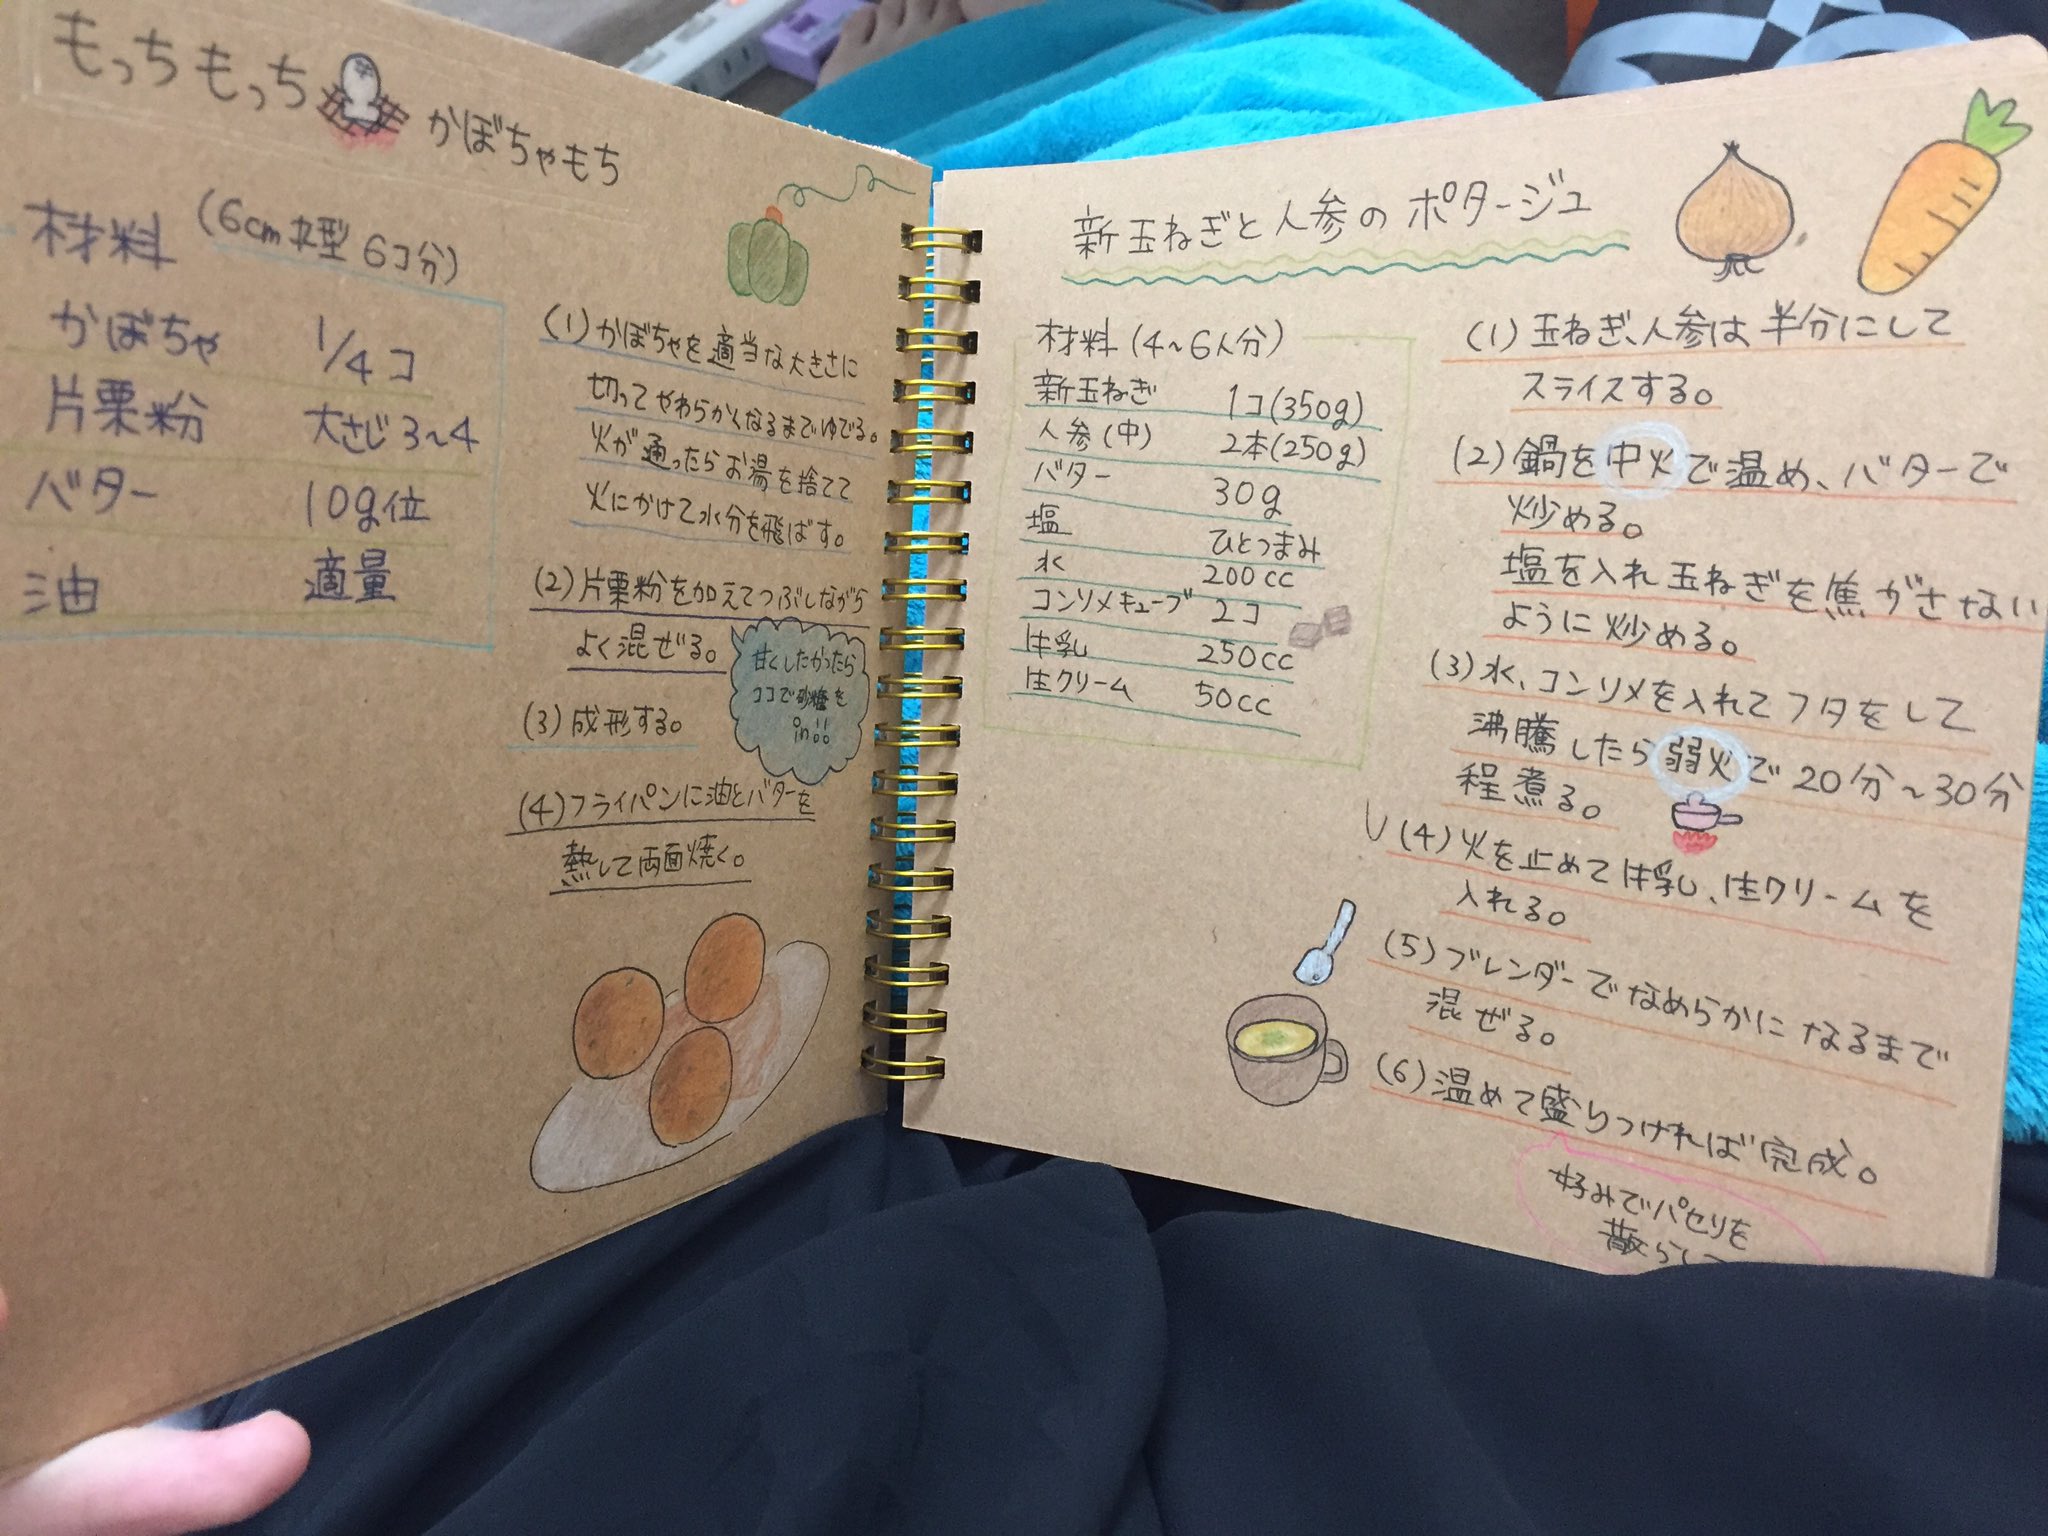 もっちもっち
かぼちゃもち
材料 (6cm丸型 6コ分)
かぼちゃ 1/4コ
片栗粉 大さじ3〜4
バター 10g位
油 適量
(1)かぼちゃを適当な大きさに
切ってやわらかくなるまでゆでる。
火が通ったらお湯を捨てて
火にかけて水分を飛ばす。
(2)片栗粉を加えてつぶしながら
よく混ぜる。
甘くしたかったら
ココで砂糖を
in!!
(3)成形する。
(4)フライパンに油とバターを
熱して両面焼く。
新玉ねぎと人参のポタージュ
材料(4〜6人分)
新玉ねぎ 1コ(350g)
人参(中) 2本(250g)
バター 30g
塩 ひとつまみ
水 200cc
コンソメキューブ 2コ
牛乳 250cc
生クリーム 50cc
(1)玉ねぎ、人参は半分にして
スライスする。
(2)鍋を中火で温め、バターで
炒める。
塩を入れ玉ねぎを焦がさない
ように炒める。
(3)水、コンソメを入れてフタをして
沸騰したら弱火で20分〜30分
程煮る。
(4)火を止めて牛乳、生クリームを
入れる。
(5)ブレンダーでなめらかになるまで
混ぜる。
(6)温めて盛りつければ完成。
好みでパセリを
散らして